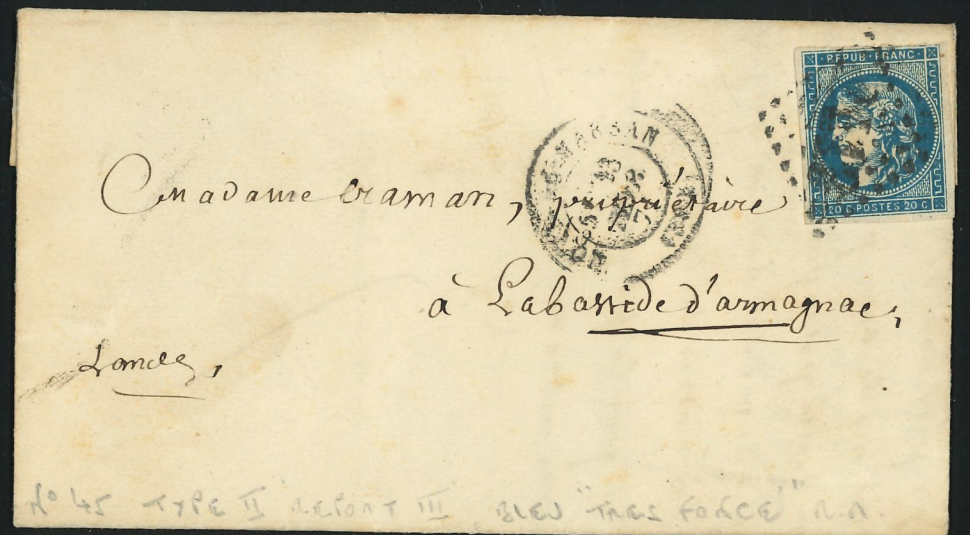 REPUB · FRANC ·
20 C · POSTES 20 C
MT DE MARSAN
Madame Craman, propriétaire
à Labastide d'armagnac,
Landes,
N° 45 TYPE II REPORT III BLEU "TRES FONCE" R.R.